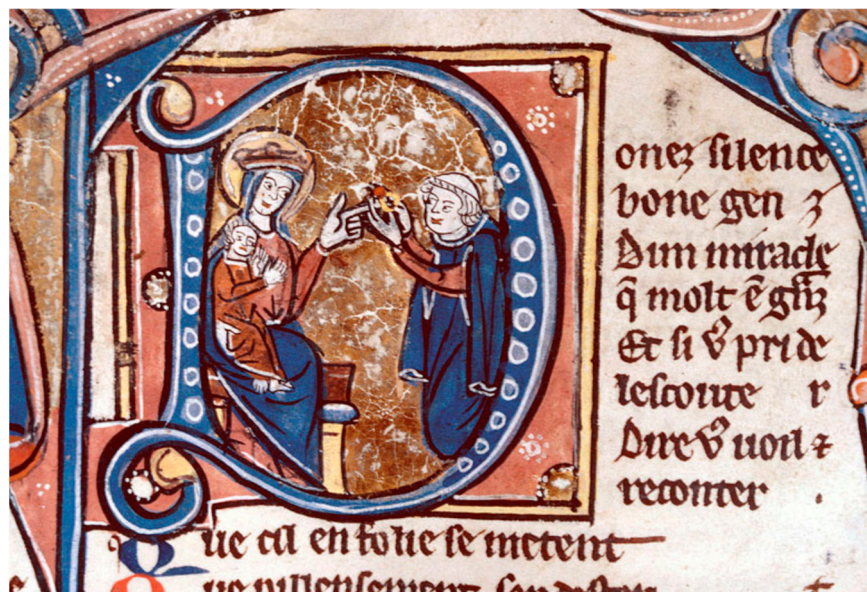 Donez silence
bone gen z
Dun miracle
q̄ molt ē g̃nz
Et si v⁹ pri de
lescoute r
Dire v⁹ uoil ⁊
reconter .
Que cil en folie se metent
Que